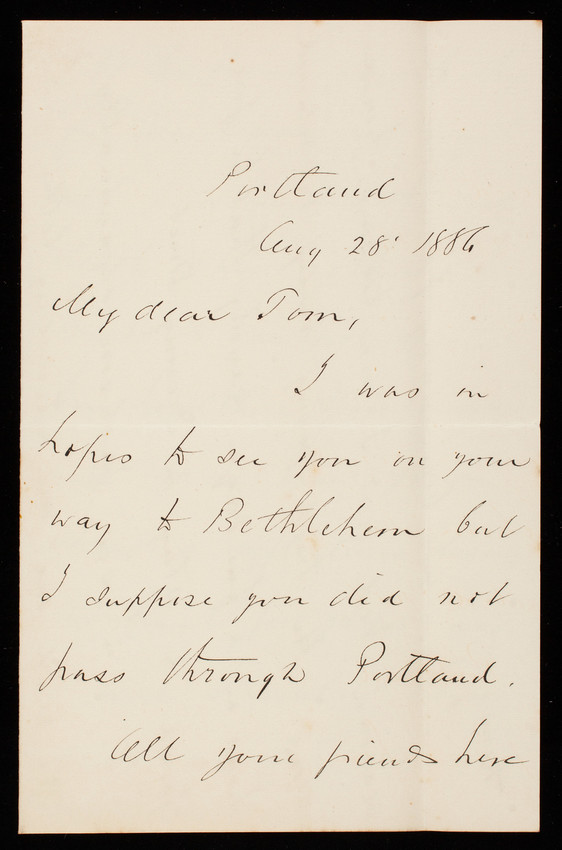 Portland
Aug 28' 1886
My dear Tom,
I was in
hopes to see you on your
way to Bethlehem but
I suppose you did not
pass through Portland.
All your friends here